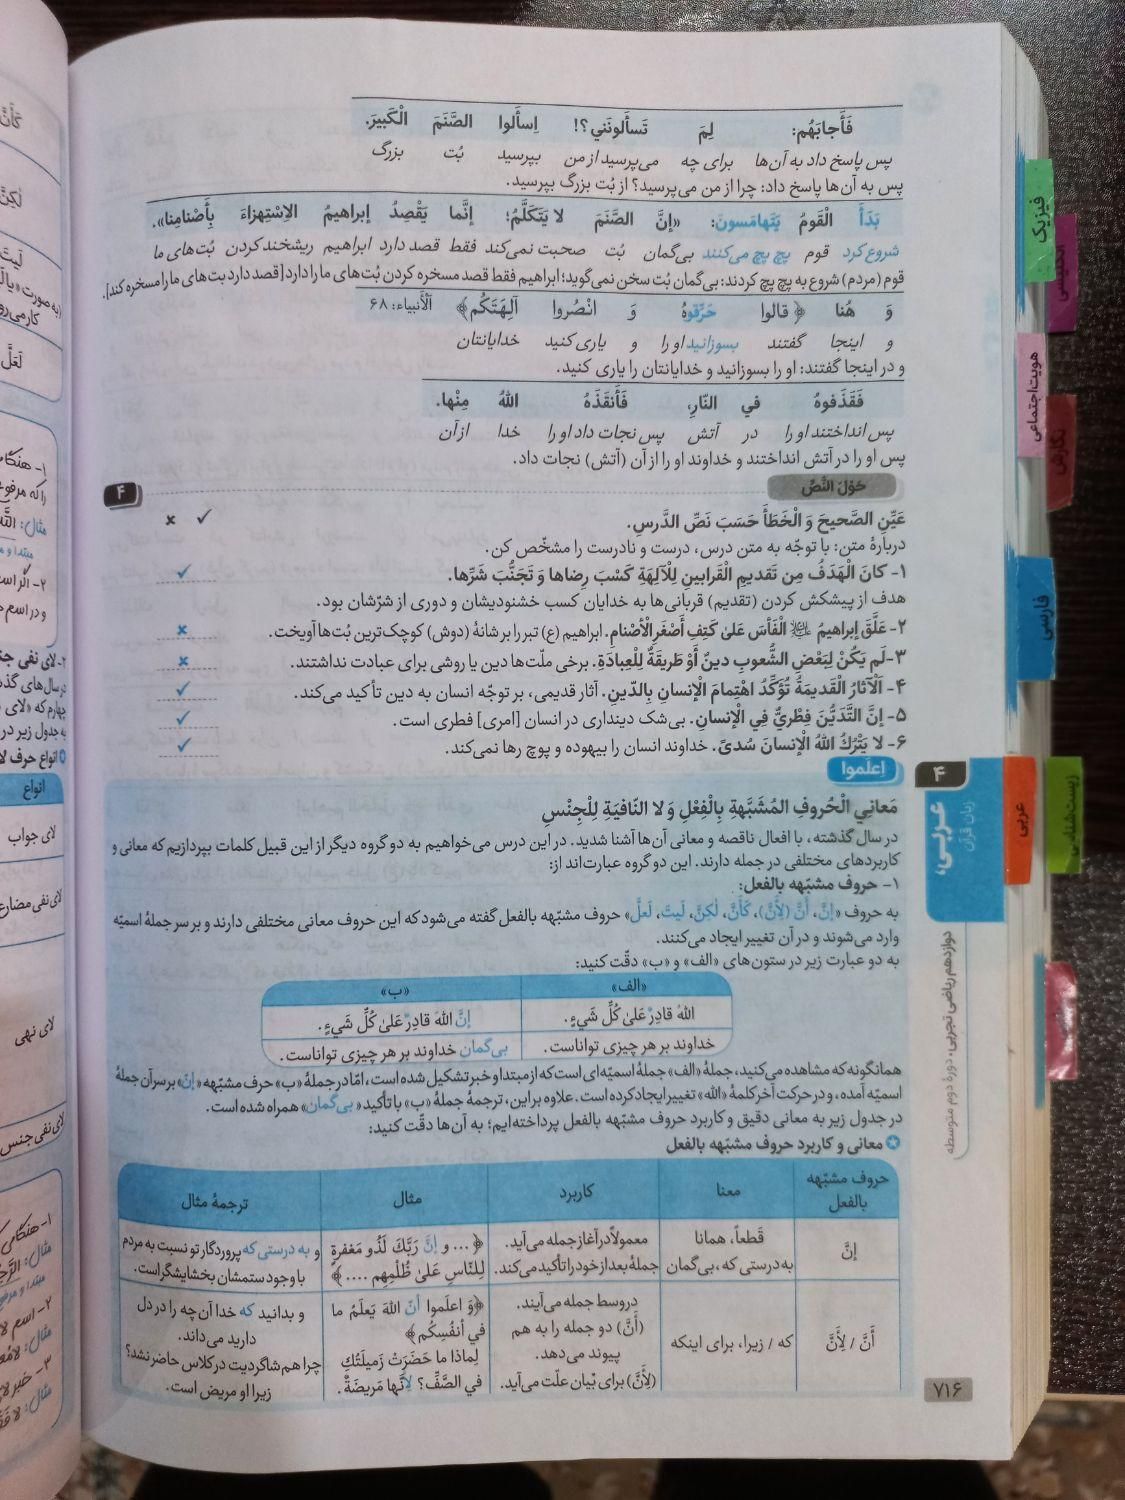 فَأَجابَهُم: لِمَ تَسأَلونَني؟! اِسأَلوا الصَّنَمَ الْكَبيرَ.
پس پاسخ داد به آن‌ها برای چه می‌پرسید از من بپرسید بُت بزرگ
پس به آن‌ها پاسخ داد: چرا از من می‌پرسید؟ از بُت بزرگ بپرسید.
بَدَأَ الْقَومُ يَتَهامَسونَ: «إنَّ الصَّنَمَ لا يَتَكَلَّمُ؛ إنَّما يَقْصِدُ إبراهيمُ الِاسْتِهزاءَ بِأَصْنامِنا».
شروع کرد قوم پچ پچ می‌کنند بی‌گمان بُت صحبت نمی‌کند فقط قصد دارد ابراهیم ریشخند کردن بُت‌های ما
قوم (مردم) شروع به پچ پچ کردند: بی‌گمان بُت سخن نمی‌گوید؛ ابراهیم فقط قصد مسخره کردن بُت‌های ما را دارد [قصد دارد بت‌های ما را مسخره کند].
وَ هُنا ﴿ قالوا حَرِّقوهُ وَ انْصُروا آلِهَتَكُم﴾ اَلْأنبياء: ۶۸
و اینجا گفتند بسوزانید او را و یاری کنید خدایانتان
و در اینجا گفتند: او را بسوزانید و خدایانتان را یاری کنید.
فَقَذَفوهُ في النّارِ، فَأَنقَذَهُ اللهُ مِنْها.
پس انداختند او را در آتش پس نجات داد او را خدا از آن
پس او را در آتش انداختند و خداوند او را از آن (آتش) نجات داد.
حَوْلَ النَّصِّ
۴
عَيِّنِ الصَّحيحَ وَ الْخَطَأَ حَسَبَ نَصِّ الدَّرسِ. ✓ ×
دربارهٔ متن: با توجّه به متن درس، درست و نادرست را مشخّص کن.
۱- كانَ الْهَدَفُ مِن تَقديمِ الْقَرابينِ لِلْآلِهَةِ كَسْبَ رِضاها وَ تَجَنُّبَ شَرِّها. ✓
هدف از پیشکش کردن (تقدیم) قربانی‌ها به خدایان کسب خشنودیشان و دوری از شرّشان بود.
۲- عَلَّقَ إبراهيمُ الْفَأسَ عَلىٰ كَتِفِ أَصْغَرِ الْأَصْنامِ. ابراهیم (ع) تبر را بر شانهٔ (دوش) کوچک‌ترین بُت‌ها آویخت. ×
۳- لَم يَكُنْ لِبَعْضِ الشُّعوبِ دينٌ أَوْ طَريقَةٌ لِلْعِبادَةِ. برخی ملّت‌ها دین یا روشی برای عبادت نداشتند. ×
۴- اَلْآثارُ الْقَديمَةُ تُؤَكِّدُ اهْتِمامَ الْإنسانِ بِالدّينِ. آثار قدیمی، بر توجّه انسان به دین تأکید می‌کند. ✓
۵- إنَّ التَّدَيُّنَ فِطْريٌّ فِي الْإنسانِ. بی‌شک دینداری در انسان [امری] فطری است. ✓
۶- لا يَتْرُكُ اللهُ الْإنسانَ سُدىً. خداوند انسان را بیهوده و پوچ رها نمی‌کند. ✓
اِعلَموا
مَعاني الْحُروفِ المُشَبَّهَةِ بِالْفِعْلِ وَ لا النّافيَةِ لِلْجِنْسِ
در سال گذشته، با افعال ناقصه و معانی آن‌ها آشنا شدید. در این درس می‌خواهیم به دو گروه دیگر از این قبیل کلمات بپردازیم که معانی و
کاربردهای مختلفی در جمله دارند. این دو گروه عبارت‌اند از:
۱- حروف مشبّهه بالفعل:
به حروف «إنَّ، أَنَّ (لِأَنَّ)، كَأَنَّ، لٰكِنَّ، لَيتَ، لَعلَّ» حروف مشبّهه بالفعل گفته می‌شود که این حروف معانی مختلفی دارند و بر سر جملهٔ اسمیّه
وارد می‌شوند و در آن تغییر ایجاد می‌کنند.
به دو عبارت زیر در ستون‌های «الف» و «ب» دقّت کنید:
«الف» «ب»
اللهُ قادِرٌ عَلىٰ كُلِّ شَيءٍ. إنَّ اللهَ قادِرٌ عَلىٰ كُلِّ شَيءٍ.
خداوند بر هر چیزی تواناست. بی‌گمان خداوند بر هر چیزی تواناست.
همانگونه که مشاهده می‌کنید، جملهٔ «الف» جملهٔ اسمیّه‌ای است که از مبتدا و خبر تشکیل شده است، امّا در جملهٔ «ب» حرف مشبّهه «إنَّ» بر سر آن جملهٔ
اسمیّه آمده، و در حرکت آخر کلمهٔ «الله» تغییر ایجاد کرده است. علاوه بر این، ترجمهٔ جملهٔ «ب» با تأکید «بی‌گمان» همراه شده است.
در جدول زیر به معانی دقیق و کاربرد حروف مشبّهه بالفعل پرداخته‌ایم؛ به آن‌ها دقّت کنید:
معانی و کاربرد حروف مشبّهه بالفعل
حروف مشبّهه بالفعل معنا کاربرد مثال ترجمهٔ مثال
إنَّ
قَطعاً، همانا
به درستی که، بی‌گمان
معمولاً در آغاز جمله می‌آید.
جملهٔ بعد از خود را تأکید می‌کند.
﴿... و إنَّ رَبَّكَ لَذُو مَغفرةٍ
لِلنّاسِ عَلىٰ ظُلْمِهِم ....﴾
و به درستی که پروردگار تو نسبت به مردم
با وجود ستمشان بخشایشگر است.
أَنَّ / لِأَنَّ
که / زیرا، برای اینکه
در وسط جمله می‌آیند.
(أَنَّ) دو جمله را به هم
پیوند می‌دهد.
(لِأَنَّ) برای بیان علّت می‌آید.
﴿وَ اعلَموا أنَّ اللهَ يَعلَمُ ما
في أنفُسِكُم﴾
لِماذا ما حَضَرَتْ زَميلَتُكِ
في الصَّفِّ؟ لِأنَّها مَريضَةٌ.
و بدانید که خدا آن‌چه را در دل
دارید می‌داند.
چرا هم شاگردیت در کلاس حاضر نشد؟
زیرا او مریض است.
۷۱۶
۴
عربی،
زبان قرآن
دوازدهم ریاضی تجربی، دورهٔ دوم متوسطه
فیزیک
انگلیسی
هویت اجتماعی
نگارش
فارسی
عربی
زیست‌شناسی
كَأَنَّ
لٰكِنَّ
لَيتَ
لَعَلَّ
انواع
لای جواب
لای نفی مضارع
لای نهی
لای نفی جنس